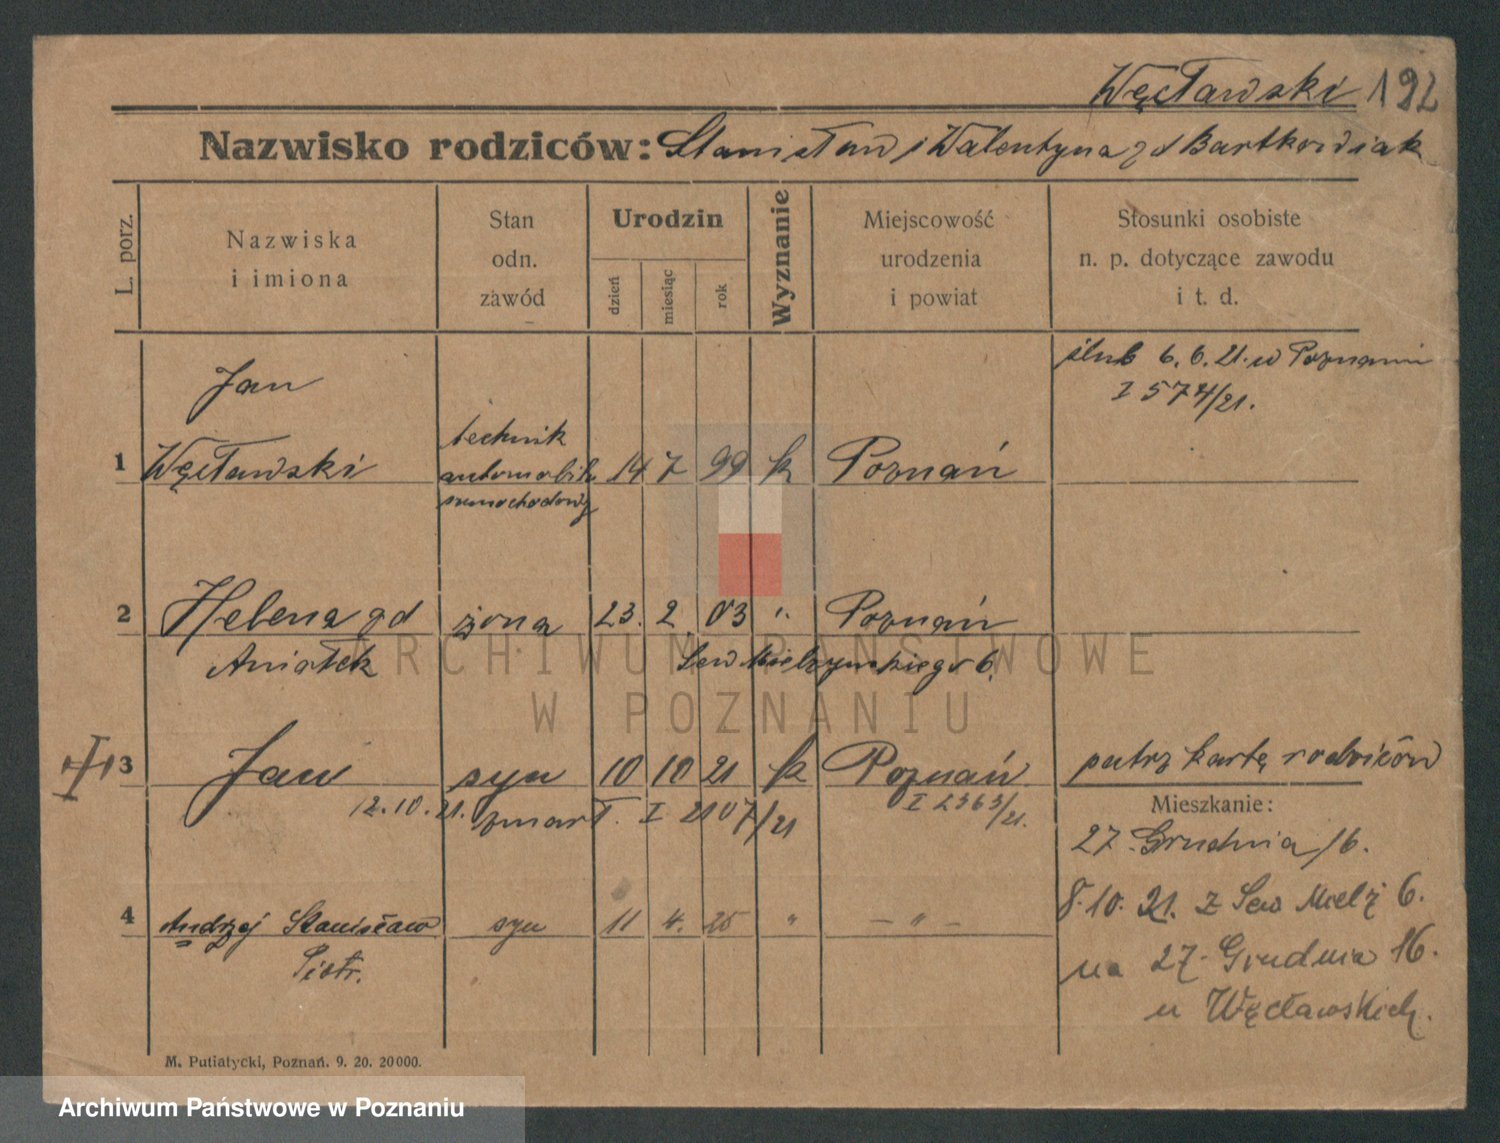 Węcławski 192
Nazwisko rodziców: Stanisław i Walentyna zd Bartkowiak
L. porz.
Nazwiska i imiona
Stan odn. zawód
Urodzin
dzień
miesiąc
rok
Wyznanie
Miejscowość urodzenia i powiat
Stosunki osobiste n. p. dotyczące zawodu i t. d.
ślub 6. 6. 21. w Poznaniu
I 574/21.
Jan
technik
1 Węcławski automobil. 14 7 99 k Poznań
samochodowy
2 Helena zd żona 23. 2. 03 ". Poznań
Aniołek Sew Mielzynskiego 6.
3 Jan syn 10 10 21 k Poznań patrz kartę rodziców
12. 10. 21. zmarł. I 2107/21 I 2363/21.
Mieszkanie:
27 Grudnia 16.
8. 10. 21. z Sew Mielż 6.
4 Andrzej Stanisław syn 11 4. 25 " – " –
Piotr.
na 27 Grudnia 16.
u Węcławskich.
M. Putiatycki, Poznań. 9. 20. 20000.
ARCHIWUM PAŃSTWOWE
W POZNANIU
Archiwum Państwowe w Poznaniu